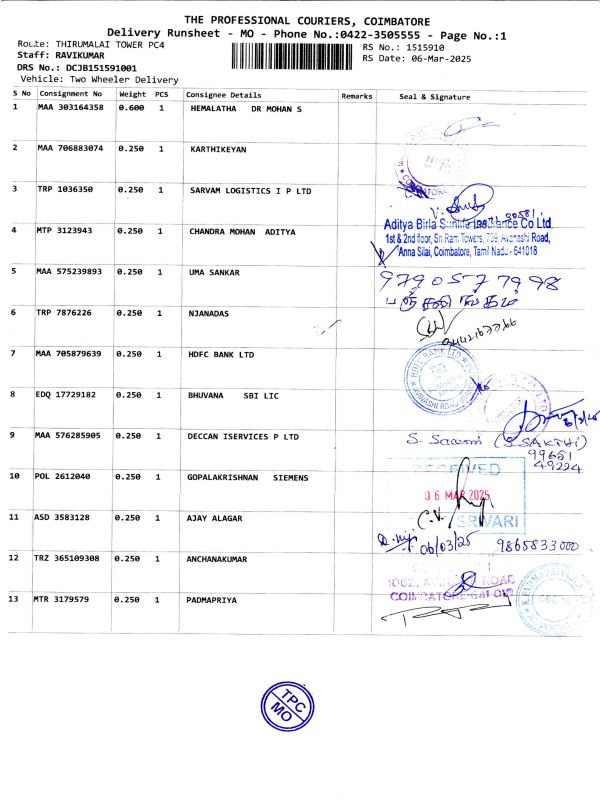 THE PROFESSIONAL COURIERS, COIMBATORE
Delivery Runsheet - MO - Phone No.:0422-3505555 - Page No.:1
Route: THIRUMALAI TOWER PC4
RS No.: 1515910
Staff: RAVIKUMAR
RS Date: 06-Mar-2025
DRS No.: DCJB151591001
Vehicle: Two Wheeler Delivery
S No Consignment No Weight PCS Consignee Details Remarks Seal & Signature
1 MAA 303164358 0.600 1 HEMALATHA DR MOHAN S
2 MAA 706883074 0.250 1 KARTHIKEYAN
3 TRP 1036350 0.250 1 SARVAM LOGISTICS I P LTD
4 MTP 3123943 0.250 1 CHANDRA MOHAN ADITYA
Aditya Birla Sunlife Insurance Co Ltd
1st & 2nd floor, Sri Ram Towers, 759, Avanashi Road,
Anna Silai, Coimbatore, Tamil Nadu - 641018
5 MAA 575239893 0.250 1 UMA SANKAR
9790577998
6 TRP 7876226 0.250 1 NJANADAS
7 MAA 705879639 0.250 1 HDFC BANK LTD
HDFC BANK LTD
8 EDQ 17729182 0.250 1 BHUVANA SBI LIC
9 MAA 576285905 0.250 1 DECCAN ISERVICES P LTD
(S SAKTHI)
99651
49224
10 POL 2612040 0.250 1 GOPALAKRISHNAN SIEMENS
RECEIVED
06 MAR 2025
SRIVARI
11 ASD 3583128 0.250 1 AJAY ALAGAR
06/03/25 9865833000
12 TRZ 365109308 0.250 1 ANCHANAKUMAR
ROAD
COIMBATORE-641 018
13 MTR 3179579 0.250 1 PADMAPRIYA
TPC
MO